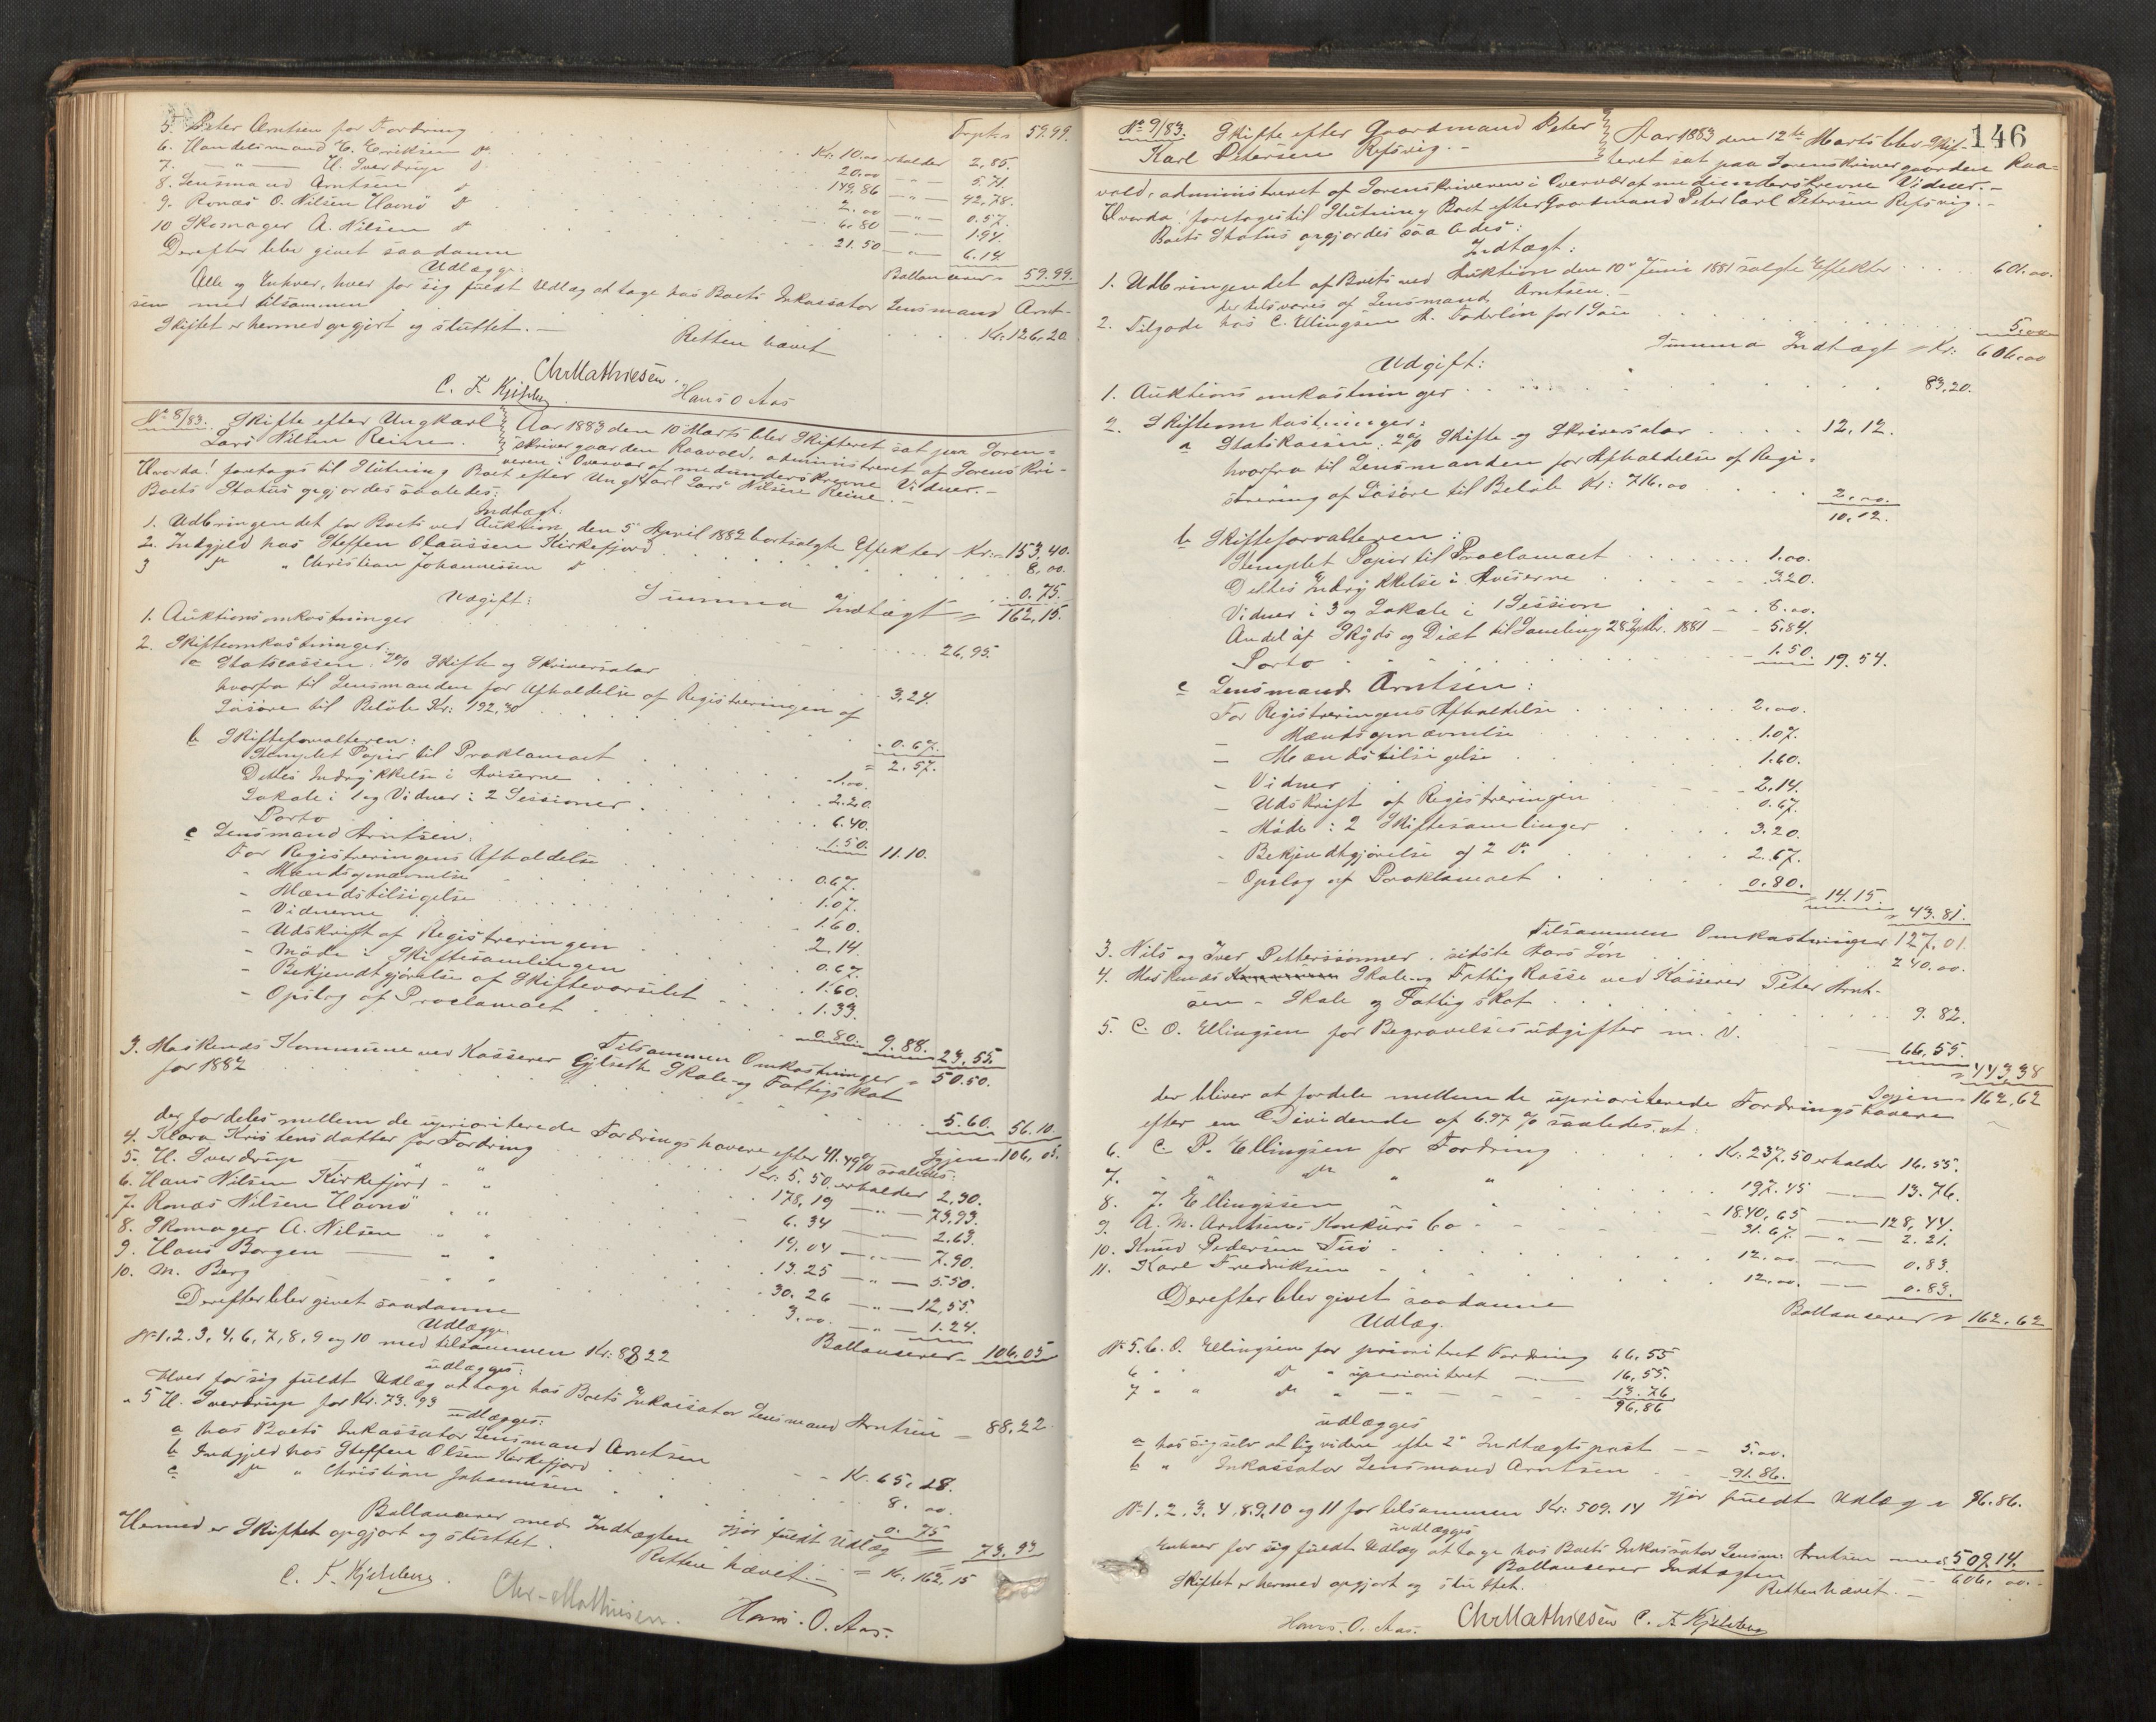 5. Peter Arntsen for Fordring . . . Trpt = 59.99.
6. Handelsmand C. Eriksen do. . . . Kr. 10.00 erholder 2,85.
7. — " — U. Sverdrup do. . . . 20.00 — " — 5.71.
8. Lensmand Arntsen do . . . 149.86 — " — 42.78.
9. Ronas O. Nilsen Havnö do . . . 2.00 — " — 0.57.
10 Skomager A. Nilsen do . . . 6.80 — " — 1.94.
21.50 — " — 6.14.
Derefter blev givet saadanne
Udlægge: Ballancerer = 59.99.
Alle og Enhver, hver for sig fuldt Udlæg at tage hos Boets Inkassator Lensmand Arnt-
sen med tilsammen . . . Kr. 126,20.
Skiftet er hermed opgjort og sluttet. —
Retten hævet
Chr Mathiesen.
C. F. Kjelsberg Hans O Aas
No 8/83. Skifte efter Ungkarl
Lars Nilsen Reine.
Aar 1883 den 10 Marts blev Skifteret sat paa Soren-
skrivergaarden Raavold, administreret af Sorenskri-
veren i Overvær af medunderskrevne Vidner. —
Hvorda! foretages til Slutning Boet efter Ungkarl Lars Nilsen Reine. —
Boets Status opgjordes saaledes:
Indtægt:
1. Udbringendet for Boets ved Auktion den 5 April 1882 bortsolgte Effekter Kr. = 153,40.
2. Indgjeld hos Steffen Olaussen Kirkefjord . . . 8,00.
3 do " Christian Johannessen do . . . 0.75.
Summa Indtægt = 162,15.
Udgift:
1. Auktionsomkostninger . . . 26,95.
2. Skifteomkostninger:
a Statscassen: 2% Skifte og Skriversalar . . . 3,24.
hvorfra til Lensmanden for Afholdelse af Registreringen af
Lösöre til Beløb Kr: 192,30 . . . 0.67.
= 2.57.
b Skifteforvalteren:
Stemplet Papir til Proklamaet . . . 1.00.
Dettes Indrykkelse i Aviserne . . . 2.20.
Lokale i 1 og Vidner i 2 Sessioner . . . 6.40.
Porto . . . 1.50. 11.10.
c Lensmand Arntsen:
For Registreringens Afholdelse . . . 0.67.
- Mændsopnævnelse . . . 1.07.
- Mændstilsigelse . . . 1.60.
- Vidnerne . . . 2.14.
- Udskrift af Registreringen . . . 0.67.
- Möde i Skiftesamlingen . . . 1.60.
- Bekjendtgjörelse af Skiftevarselet . . . 1.33.
- Opslag af Proclamaet . . . 0.80. 9.88. 23,55.
Tilsammen Omkostninger = 50.50.
3. Moskenes Kommune ved Kasserer Gjlseth Skole og Fattigskat
for 1882 . . . 5.60. 56.10.
Igjen = 106,05.
der fordeles mellem de uprioriterede Fordringshavere efter 41.49% saaledes:
4. Klara Kristensdatter for Fordring . . . Kr: 5.50. erholder 2,30.
5. U. Sverdrup " " . . . 178,19 — " — 73,93.
6. Hans Nilsen Kirkefjord " " . . . 6.34 — " — 2.63.
7. Ronas Nilsen Havnö " " . . . 19.04 — " — 7.90.
8. Skomager A. Nilsen " " . . . 13.25 — " — 5.50.
9. Hans Borgen — " " . . . 30.26 — " — 12,55.
10. M. Berg " " . . . 3.00. — " — 1.24.
Derefter blev givet saadanne Ballancerer = 106.05
Udlægge.
No 1, 2, 3, 4, 6, 7, 8, 9 og 10 med tilsammen Kr: 88 22
udlægges:
Hver for sig fuldt Udlæg at tage hos Boets Inkassator Lensmand Arntsen = 88,22.
" 5 U. Sverdrup for Kr. 73.93
udlægges:
a hos Boets Inkassator Lensmand Arntsen . . . Kr. 65,18.
b Indgjeld hos Steffen Olsen Kirkefjord . . . 8.00.
c do " Christian Johannesen . . . 0.75
gjør fuldt Udlæg = 73,93
Ballancerer med Indtægten = Kr. 162,15
Hermed er Skiftet opgjort og sluttet.
Retten hævet. —
C. F. Kjelsberg. Chr. Mathiesen. Hans. O. Aas.
146
No 9/83. Skifte efter Gaardmand Peter
Karl Petersen Refsvig. —
Aar 1883 den 12te Marts blev Skif-
teret sat paa Sorenskrivergaarden Raa-
vold, administreret af Sorenskriveren i Overvær af medunderskrevne Vidner. —
Hvorda! foretages til Slutning Boet efter Gaardmand Peter Carl Petersen Refsvig. —
Boets Status opgjordes saaledes:
Indtægt:
1. Udbringendet af Boets ved Auktion den 10de Juni 1881 solgte Effekter . . . 601.00.
der tilsvares af Lensmand Arntsen. —
2. Tilgode hos C. Ellingsen H. Foderløn for 1 . . . 5.00
Summa Indtægt = Kr: 606,00
Udgift:
1. Auktionsomkostninger . . . 83,20.
2. Skifteomkostninger:
a Statskassen: 2% Skifte og Skriversalar . . . 12,12.
hvorfra til Lensmanden for Afholdelse af Regi-
strering af Løsøre til Beløb Kr: 716.00 . . . 2.00.
10,12.
b Skifteforvalteren:
Stemplet Papir til Proclamaet . . . 1.00.
Dettes Indrykkelse i Aviserne . . . 3.20.
Vidner i 3 og Lokale i 1 Session . . . 8.00.
Andel af Skyds og Diæt til Samling 28 Septbr. 1881 — 5.84.
Porto . . . 1.50. 19.54.
c Lensmand Arntsen:
For Registreringens Afholdelse . . . 2.00.
— Mændsopnævnelse . . . 1.07.
— Mændstilsigelse . . . 1.60.
- Vidner . . . 2,14.
- Udskrift af Registreringen . . . 0.67.
- Möde i 2 Skiftesamlinger . . . 3.20.
- Bekjendtgjörelse af 2 do . . . 2.67.
- Opslag af Proklamaet . . . 0.80. = 14.15. = 43.81.
Tilsammen Omkostninger 127,01.
3. Nils og Iver Petterssønner, sidste Aars Løn . . . 240.00.
4. Moskenes Skole og Fattigkasse ved Kasserer Peter Arnt-
sen - Skole og Fattigskat . . . 9.82.
5. C. O. Ellingsen for Begravelsesudgifter m. V. . . . 66,55. = 443,38
Igjen = 162,62
der bliver at fordele mellem de uprioriterede Fordringshavere
efter en Dividende af 6.97% saaledes, at:
6. C. P. Ellingsen for Fordring . . . Kr: 237,50 erholder 16.55.
7. " do " " . . . 197.45 — " — 13.76.
8. J. Ellingssen " " . . . 1840,65 — " — 128,44.
9. A. M. Arntsens Konkursbo - - - 31.67. — " — 2.21.
10. Knud Pedersen . . . 12.00. — " — 0.83.
11. Karl Fredriksen . . . 12.00. — " — 0.83.
Derefter blev givet saadanne Ballancerer = 162,62
Udlæg.
No 5. C. O. Ellingsen for prioritert Fordring 66,55
6 " do " uprioriteret — " — 16,55.
7 " " do " — " — 13.76
96,86
udlægges
a hos sig selv at liqvidere efter 2de Indtægtspost — — 5.00.
b " Inkassator Lensmand Arntsen . . . 91.86.
gjør fuldt Udlæg = 96.86.
No 1, 2, 3, 4, 8, 9, 10 og 11 for tilsammen Kr: 509.14
udlægges
Enhver for sig fuldt Udlæg at tage hos Boets Inkassator Lensm: Arntsen med 509.14.
Ballancerer Indtægten 606,00. -
Skiftet er hermed opgjort og sluttet. Retten hævet. —
Hans. O. Aas. Chr Mathiesen C. F. Kjelsberg